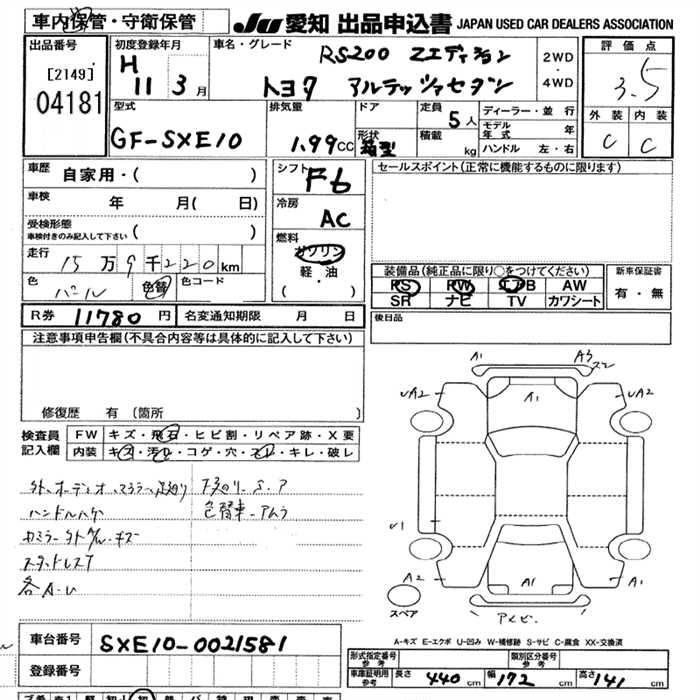 車内保管・守衛保管
JU 愛知 出品申込書 JAPAN USED CAR DEALERS ASSOCIATION
出品番号
[2149]
04181
初度登録年月
H 11 3月
車名・グレード
RS200 Zエディション
トヨタ アルテッツァセダン
2WD
・
4WD
評価点
3.5
外装 内装
C C
型式
GF-SXE10
排気量
1.99CC
ドア
形状
箱型
定員
5人
積載
kg
ディーラー・並行
モデル年式 年
ハンドル 左・右
車歴
自家用・( )
車検
年 月( 日)
受検形態
車検付きのみ記入して下さい ( )
走行
15万9千220km
色
パール
色替
色コード
シフト
F6
冷房
AC
燃料
ガソリン
軽・油
( )
セールスポイント(正常に機能するものに限ります)
装備品(純正品に限り○をつけてください)
PS PW エアB AW
SR ナビ TV カワシート
新車保証書
有・無
R券 11780円 名変通知期限 月 日
後日品
注意事項申告欄(不具合内容等は具体的に記入して下さい)
修復歴 有(箇所 )
検査員記入欄
FW キズ・飛石・ヒビ割・リペア跡・X要
内装 キズ・汚レ・コゲ・穴・スレ・キレ・破レ
外、オーディオ、マフラー、足廻り
ハンドルハゲ
カミラー外
スタッドレス
各A-U
下廻り-S-A
色替車-
A1
A3
スレ
UA2
A1
UA2
U1
A2
A1
A2
スペア
A-キズ E-エクボ U-凹み W-補修跡 S-サビ C-腐食 XX-交換済
車台番号
SXE10-0021581
登録番号
形式指定番号
参考
類別区分番号
参考
車庫証明用
参考
長さ 440cm 幅 172cm 高さ 141cm